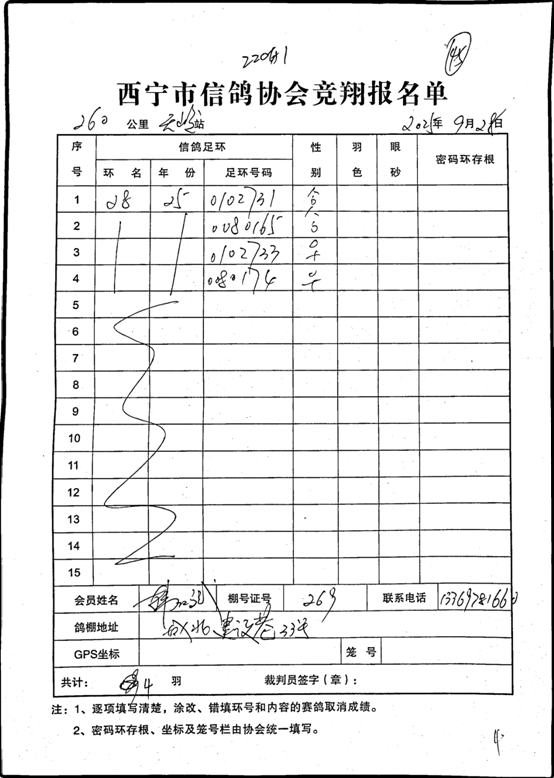 西宁市信鸽协会竞翔报名单
260 公里 站 2025年 9月28日
序号 信鸽足环 性别 羽色 眼砂 密码环存根
环名 年份 足环号码
1 28 25 0102731
2 0080165
3 0102733
4 080174
5
6
7
8
9
10
11
12
13
14
15
会员姓名 棚号证号 269 联系电话
鸽棚地址 城北 建设巷 33号
GPS坐标 笼号
共计： 4 羽 裁判员签字（章）：
注：1、逐项填写清楚，涂改、错填环号和内容的赛鸽取消成绩。
2、密码环存根、坐标及笼号栏由协会统一填写。